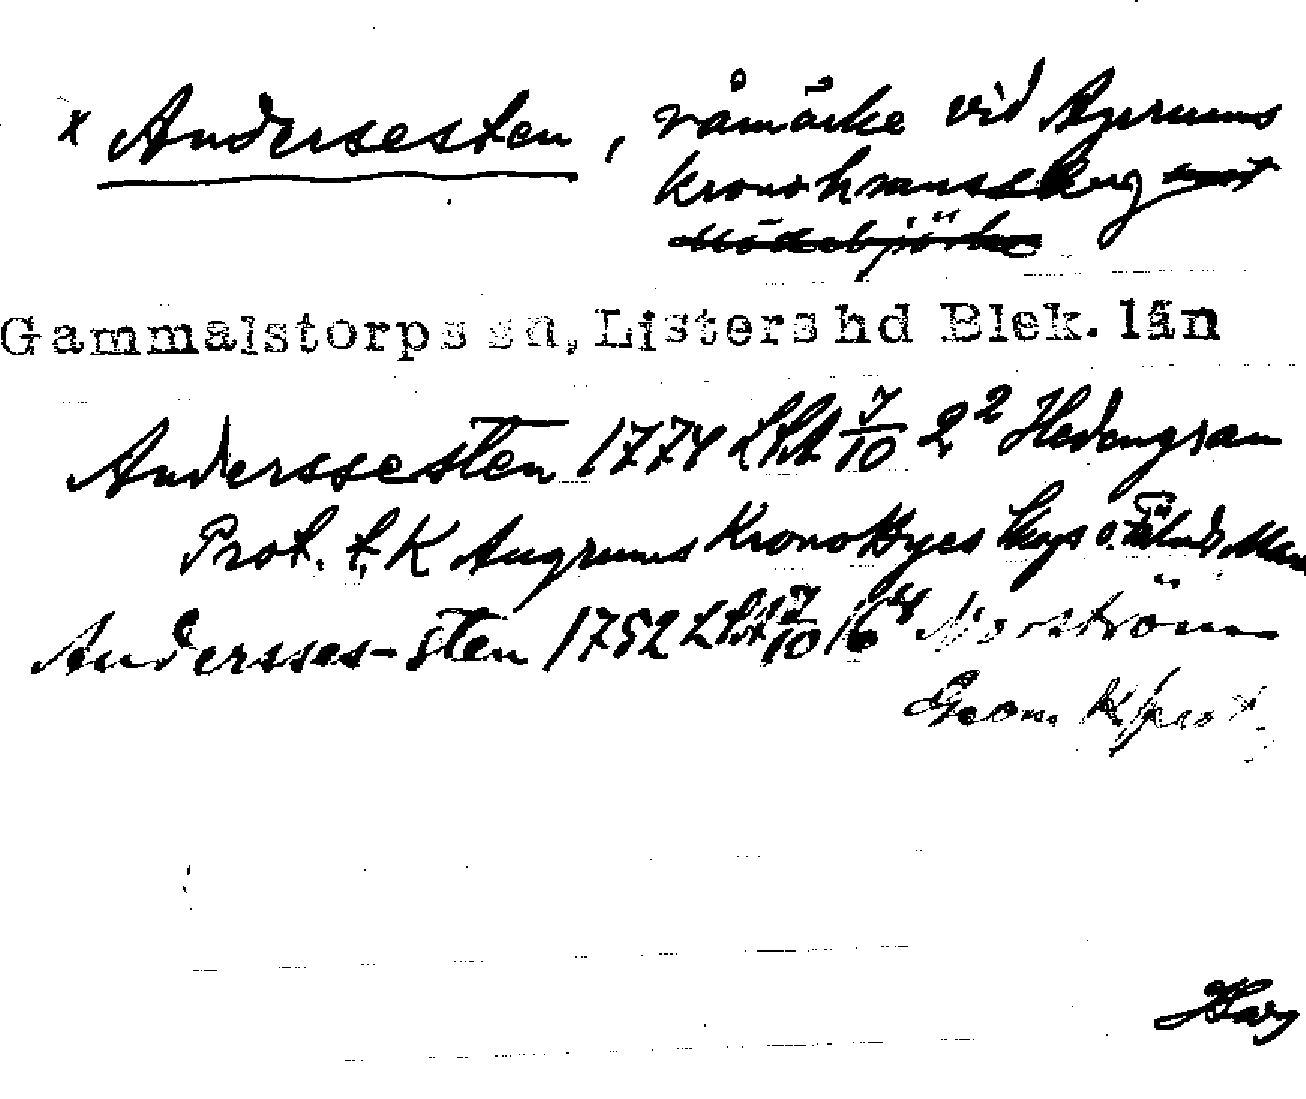 x Andersesten, råmärke vid Agerums
kronohemsskog mot
Mödebjörke
Gammalstorps sn, Listers hd Blek. län
Anderssesten 1774 LSA 7/10 2² Hedengran
Prot. t. K Augrums Kronohyes Skogs o.
Andersses-sten 1752 LSA 7/10 16⁴ Norström
Geom. K prot.